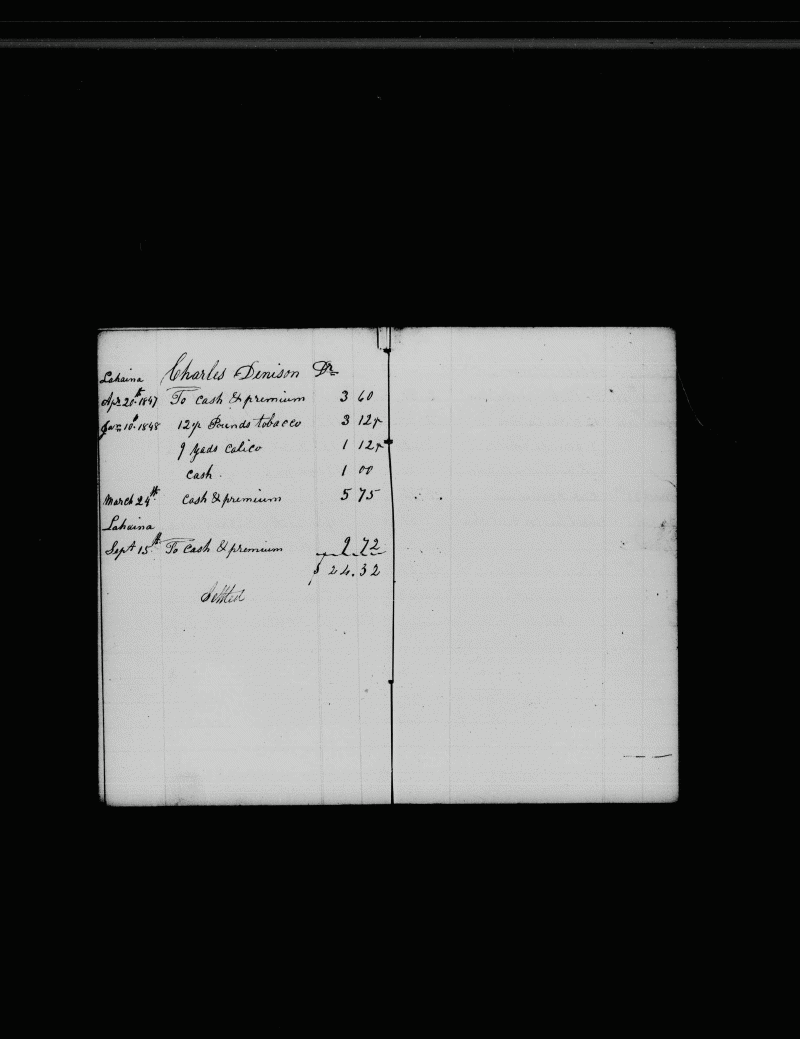 Lahaina Charles Denison Dr
Apr 20th 1847 To cash & premium 3 60
Jan 10th 1848 12½ Pounds tobacco 3 12½
9 yads calico 1 12½
cash 1 00
March 24th cash & premium 5 75
Lahaina
Sept 15th To cash & premium 9 72
$ 24.32
Settled